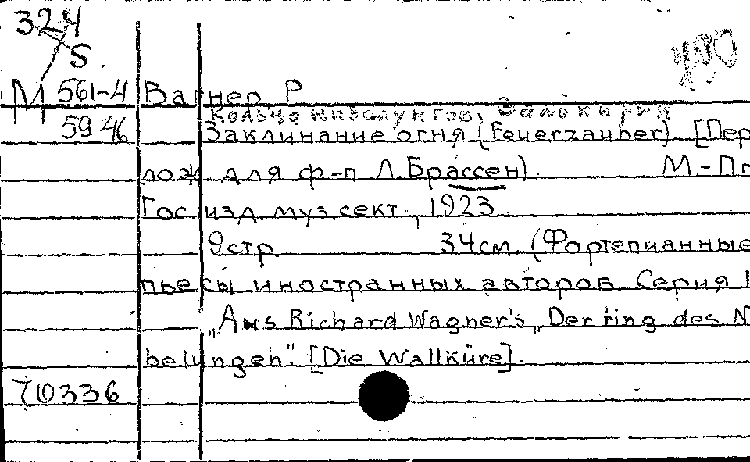 324
S
М 561-4 Вагнер, Р
Кольцо нибелунгов, Валькирия
594 Заклинание огня (Feuerzauber). [Пер
лож. для ф-п Л. Брассен). М.-Пг
Гос. изд. муз. сект., 1923
9 стр. 34 см. (Фортепианные
пьесы иностранных авторов. Серия
„Aus Richard Wagner's „Der ring des N
belungen". [Die Wallküre].
710336